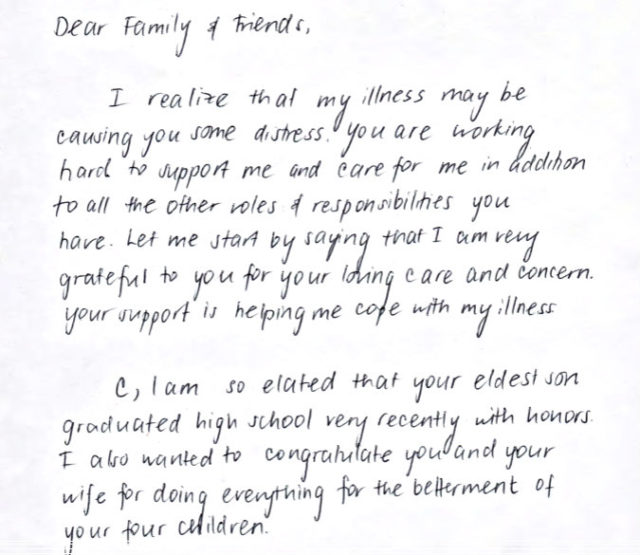 Dear Family & Friends,
I realize that my illness may be
causing you some distress. You are working
hard to support me and care for me in addition
to all the other roles & responsibilities you
have. Let me start by saying that I am very
grateful to you for your loving care and concern.
your support is helping me cope with my illness
C, I am so elated that your eldest son
graduated high school very recently with honors.
I also wanted to congratulate you and your
wife for doing everything for the betterment of
your four children.